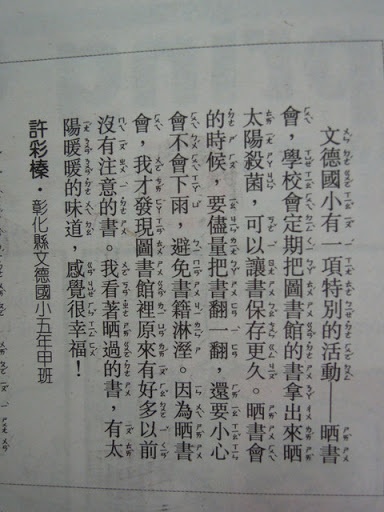 文德國小有一項特別的活動──晒書
會，學校會定期把圖書館的書拿出來晒
太陽殺菌，可以讓書保存更久。晒書會
的時候，要儘量把書翻一翻，還要小心
會不會下雨，避免書籍淋溼。因為晒書
會，我才發現圖書館裡原來有好多以前
沒有注意的書。我看著晒過的書，有太
陽暖暖的味道，感覺很幸福！
許彩榛．彰化縣文德國小五年甲班